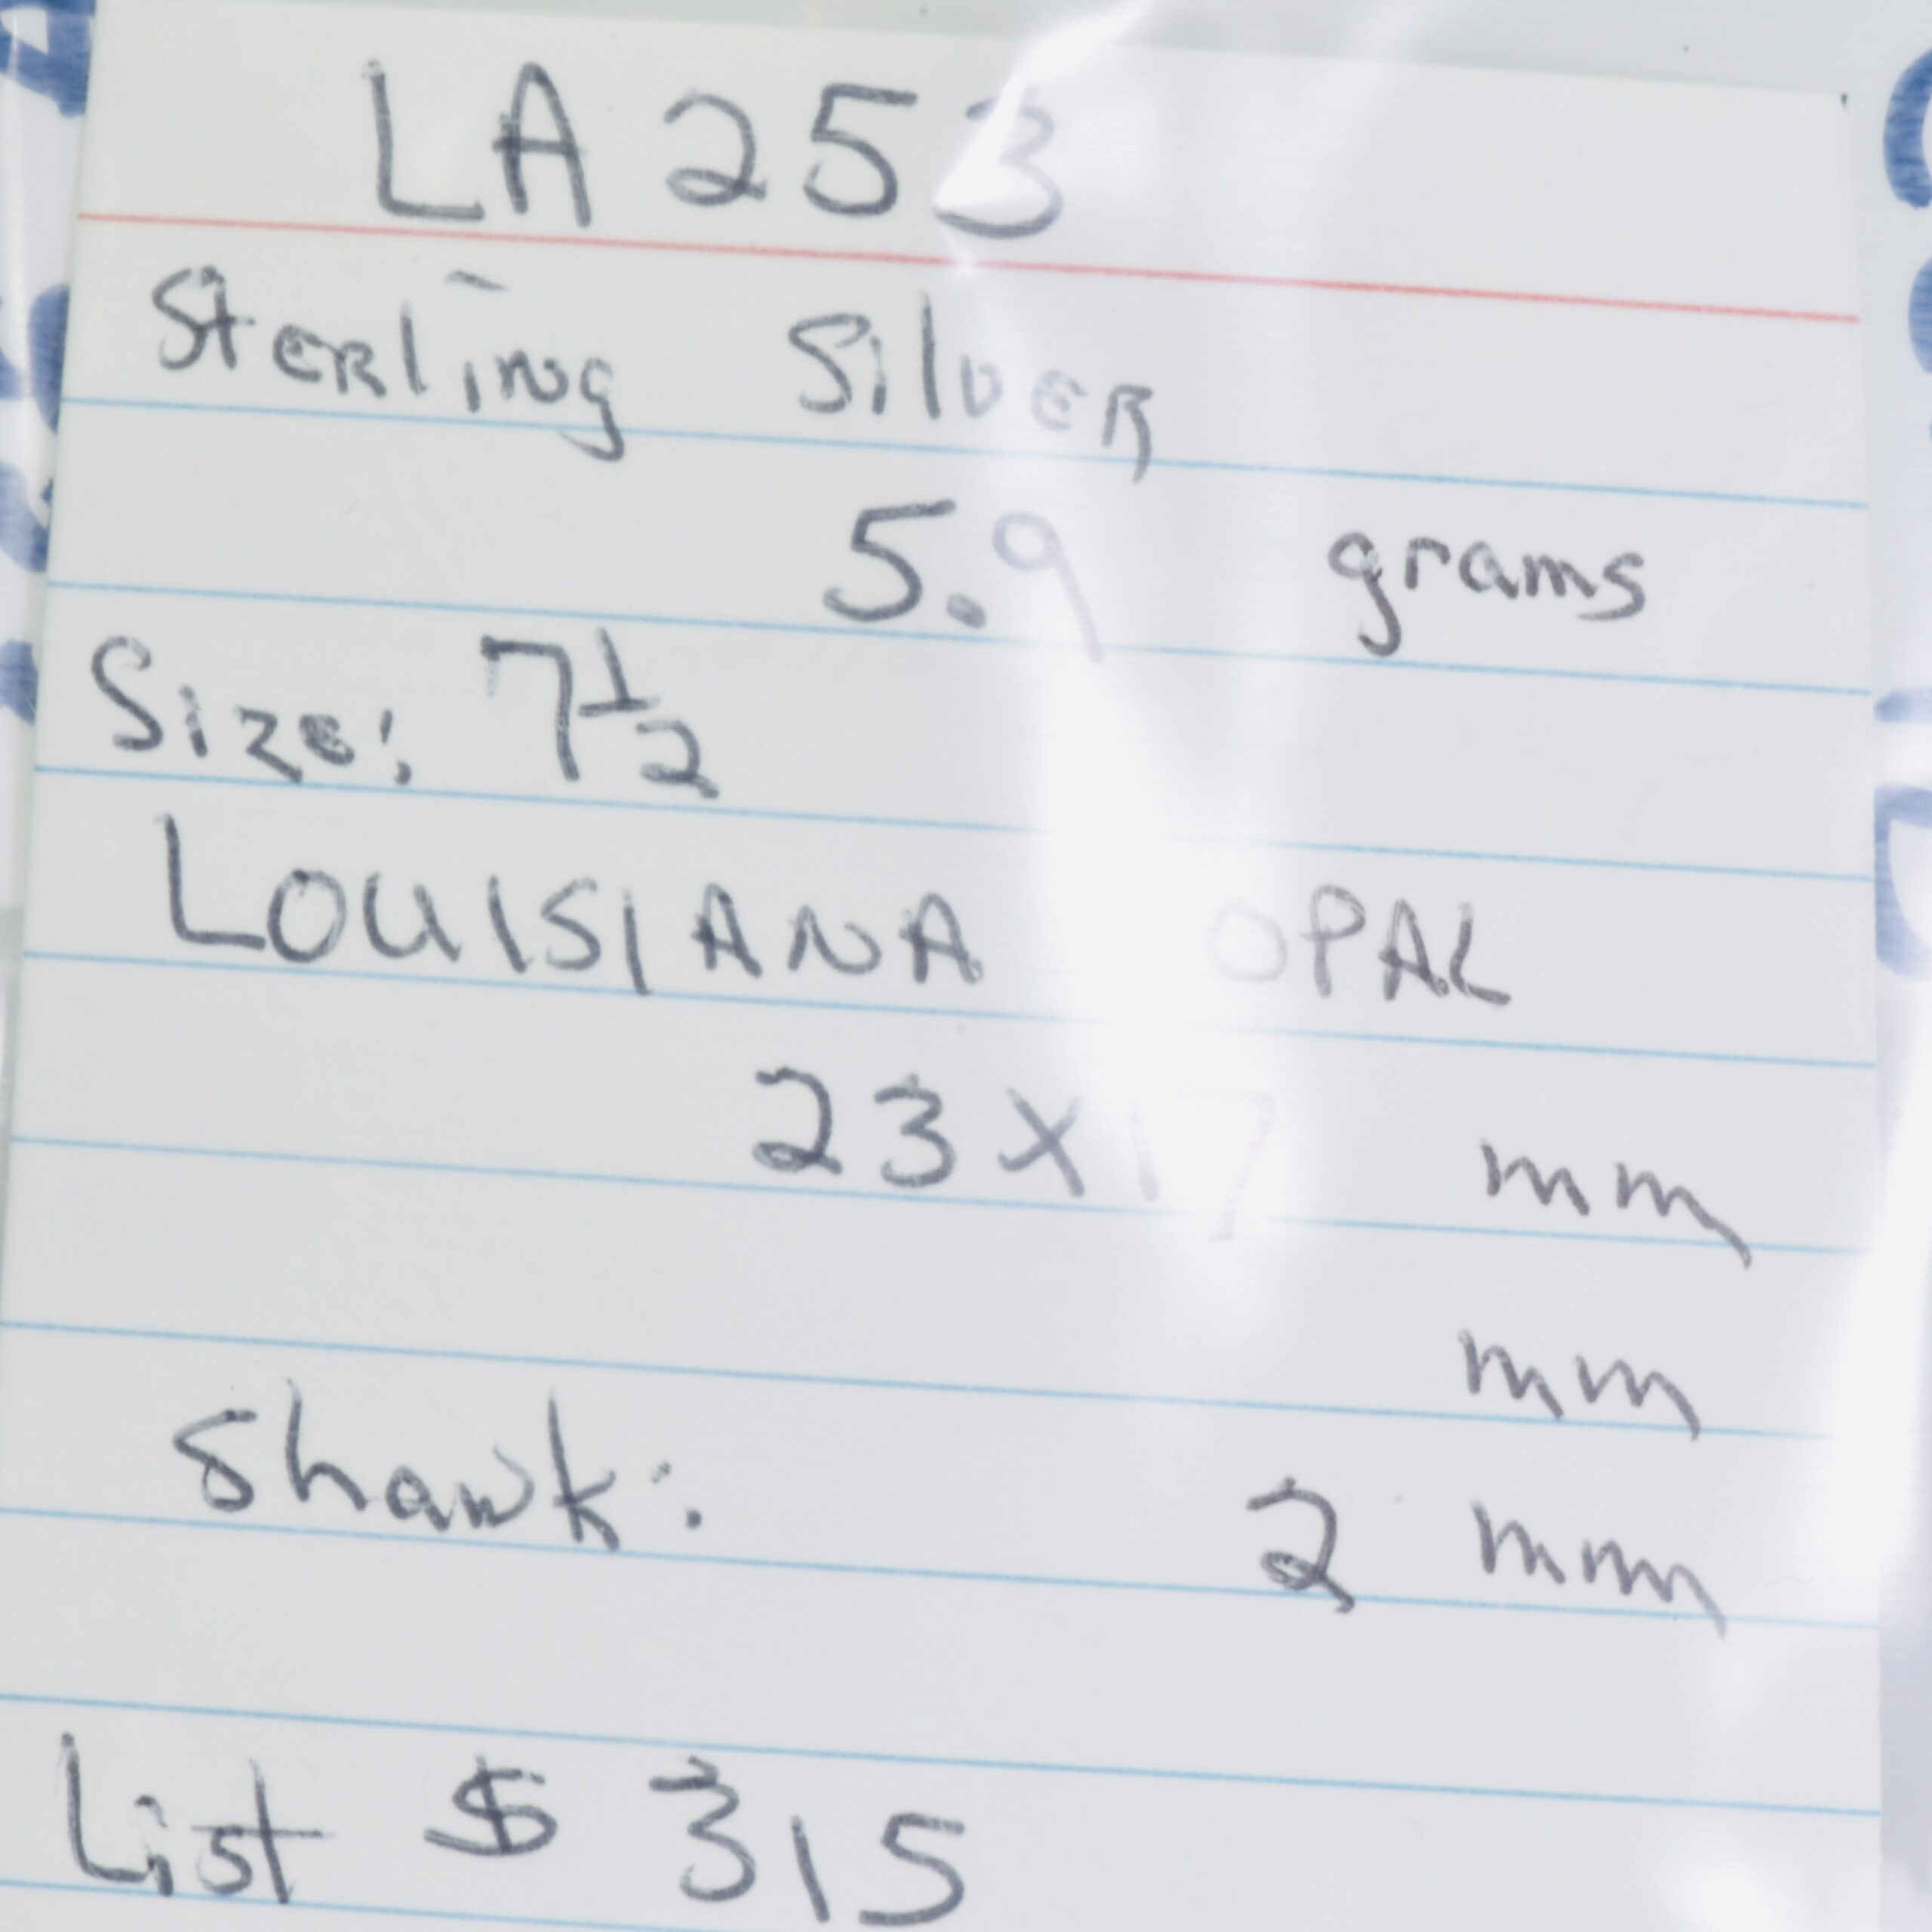 LA 253
Sterling Silver
5.9 grams
Size: 7 1/2
LOUISIANA OPAL
23 x 17 mm
mm
Shank: 2 mm
List $ 315